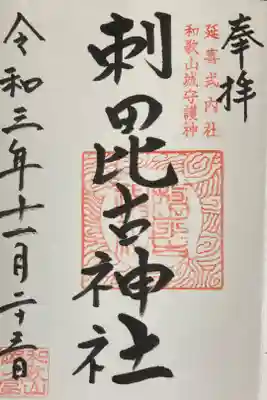 奉拝
延喜式内社
和歌山城守護神
刺田比古神社
令和三年十一月二十三日